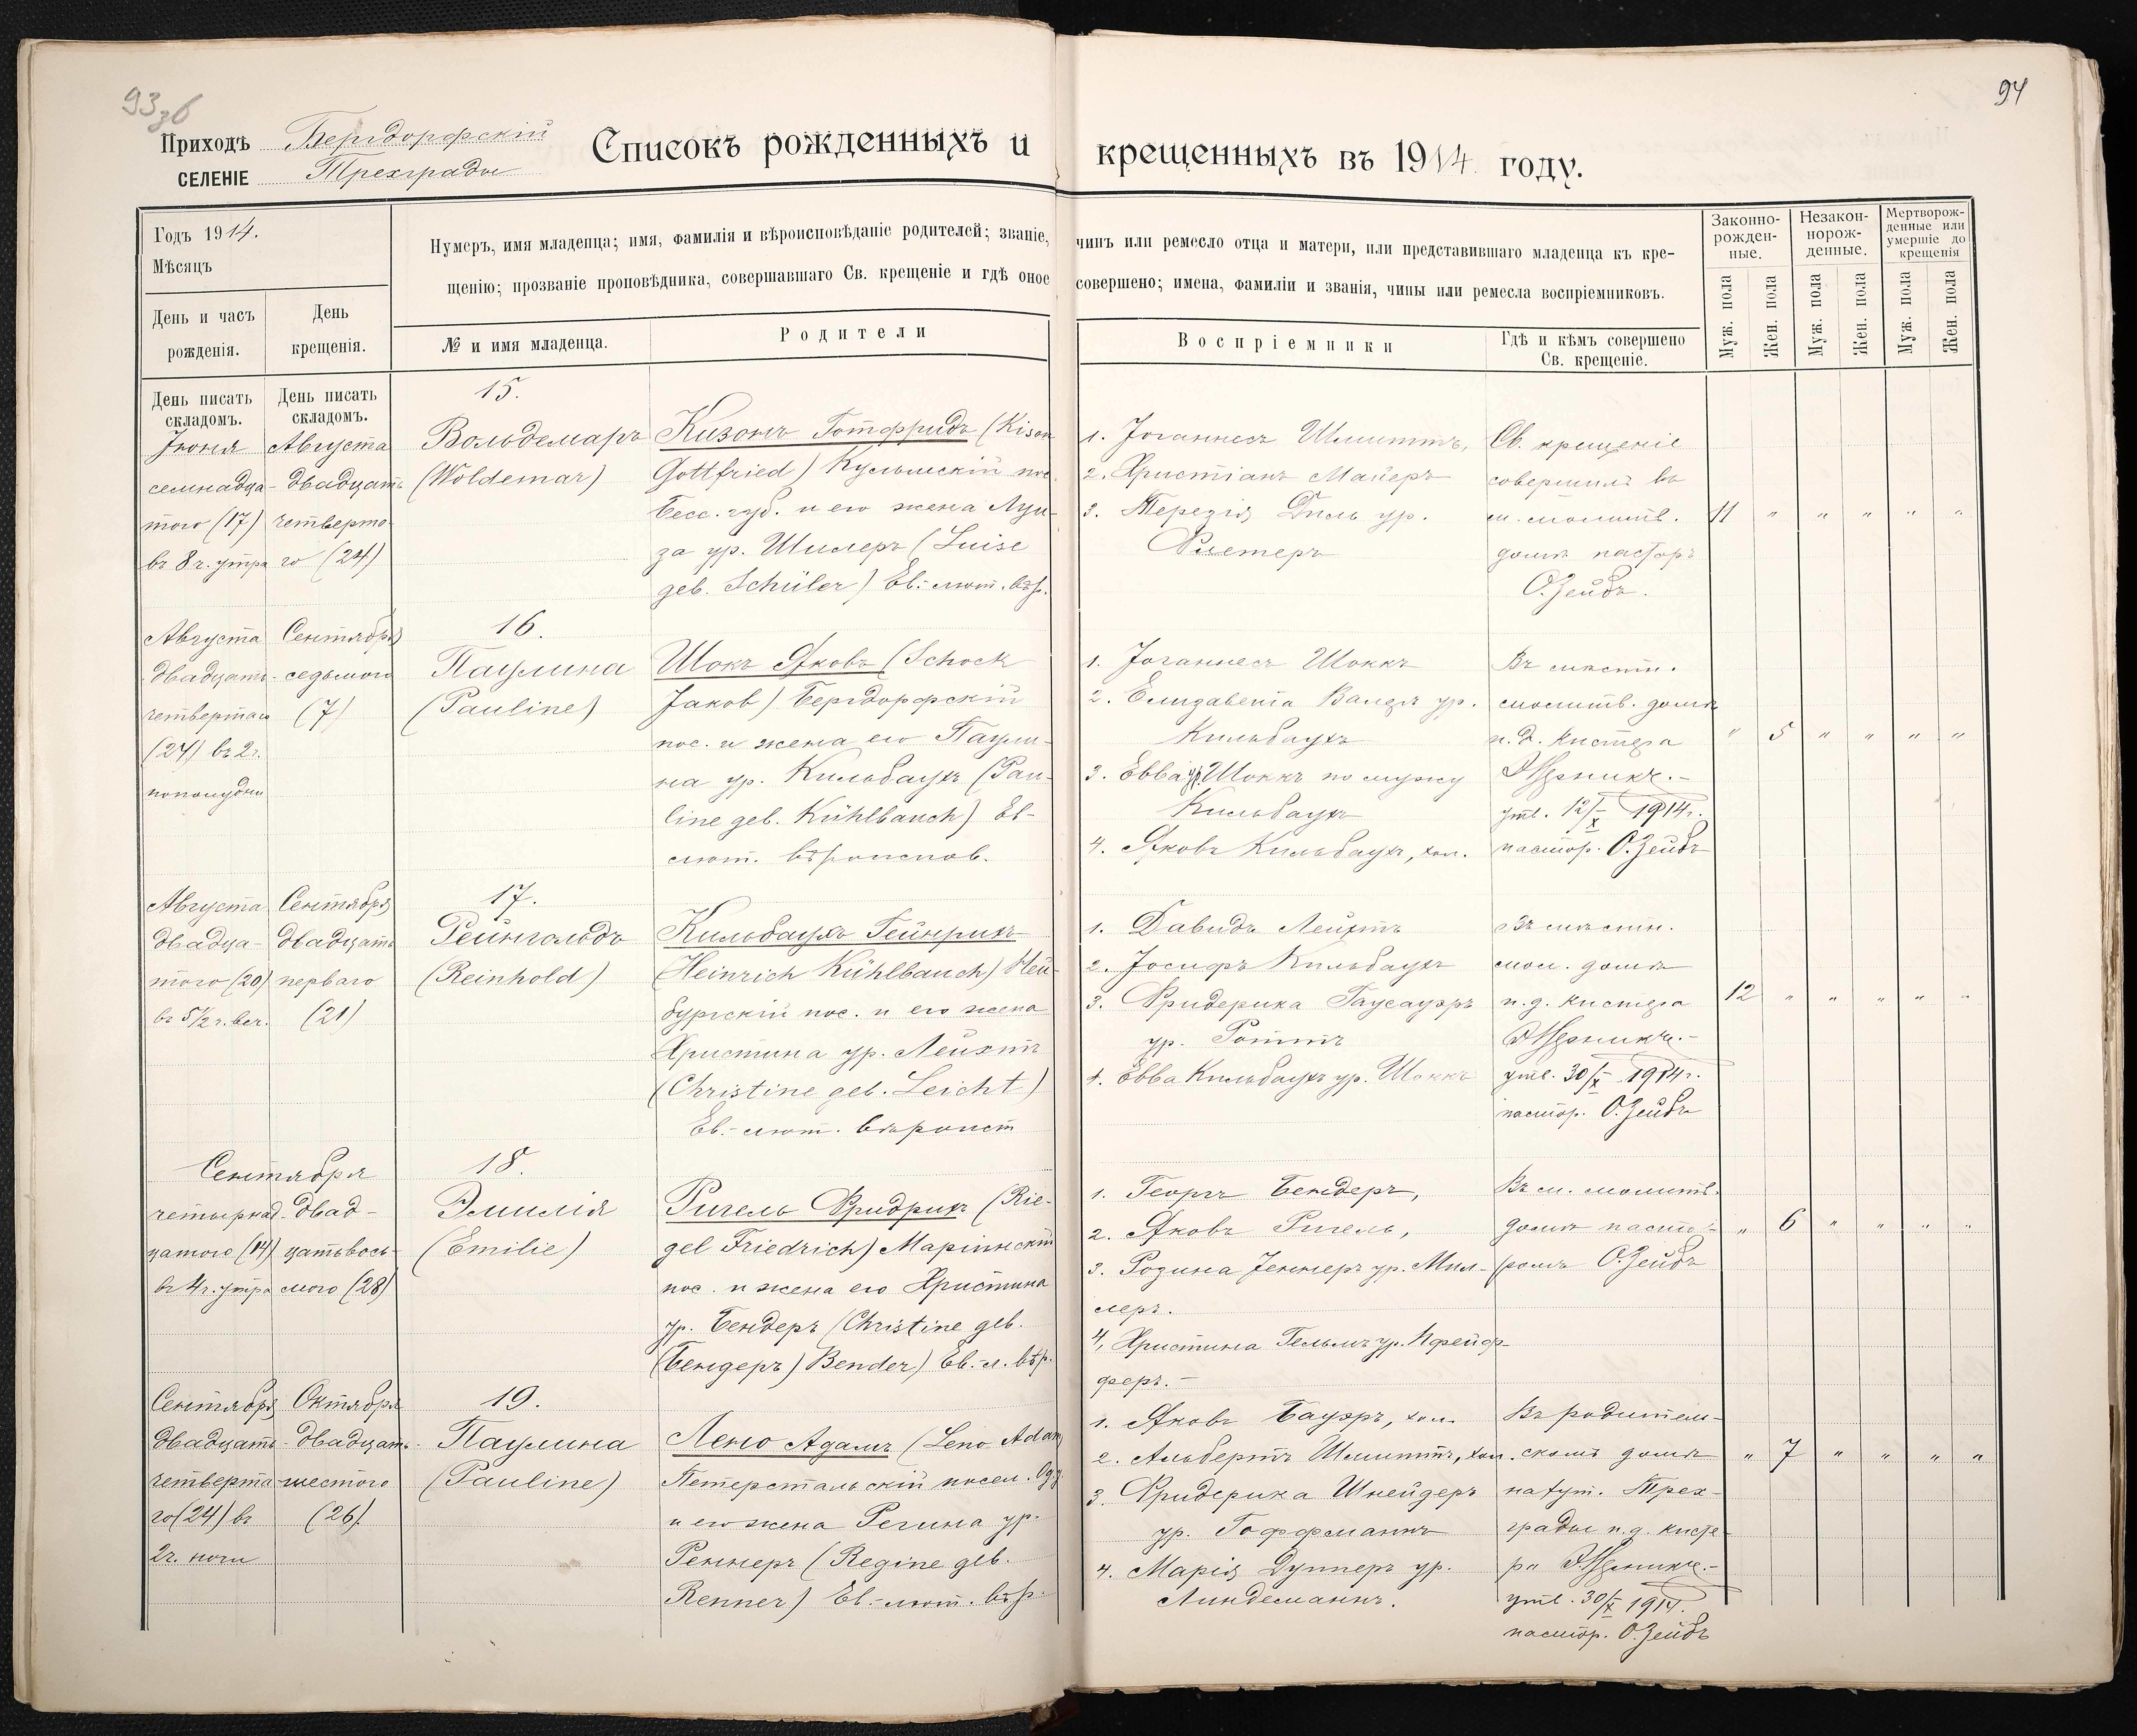 93
94
Приходъ Бергдорфскій
СЕЛЕНІЕ Трехграды
Списокъ рожденныхъ и крещенныхъ въ 1914 году.
Годъ 1914.
Мѣсяцъ
День и часъ рожденія.
День крещенія.
Нумеръ, имя младенца; имя, фамилія и вѣроисповѣданіе родителей; званіе, чинъ или ремесло отца и матери, или представившаго младенца къ кре-
щенію; прозваніе проповѣдника, совершавшаго Св. крещеніе и гдѣ оное совершено; имена, фамиліи и званія, чины или ремесла воспріемниковъ.
№ и имя младенца.
Родители
Воспріемники
Гдѣ и кѣмъ совершено
Св. крещеніе.
Законно-
рожден-
ные.
Незакон-
норож-
денные.
Мертворож-
денные или
умершіе до
крещенія
Муж. пола
Жен. пола
Муж. пола
Жен. пола
Муж. пола
Жен. пола
День писать
складомъ.
День писать
складомъ.
Іюня
семнадца-
таго (17)
въ 8 ч. утра
Августа
двадцать
четверта-
го (24)
15.
Вольдемаръ
(Woldemar)
Кизонъ Готфридъ (Kison
Gottfried) Кульмскій пос.
Бесс. губ. и его жена Луи-
за ур. Шилеръ (Luise
geb. Schüler) Ев.-лют. вѣр.
1. Іоганнесъ Шмиттъ,
2. Христіанъ Майеръ
3. Терезія Диль ур.
Св. крещеніе
совершилъ въ
м. молитв.
домѣ пасторъ
О. Зейбъ.
11 " " " " "
Августа
двадцать
четвертаго
(24) въ 2 ч.
пополудни
Сентября
седьмого
(7)
16.
Паулина
(Pauline)
Шокъ Яковъ (Schock
Jakob) Бергдорфскій
пос. и жена его Паули-
на ур. Кильбаухъ (Pau-
line geb. Kühlbauch) Ев-
лют. вѣроиспов.
1. Іоганнесъ Шоккъ
2. Елизавета Валеръ ур.
Кильбаухъ
3. Евва ур. Шоккъ по мужу
Кильбаухъ
4. Яковъ Кильбаухъ, хол.
Въ мѣстн.
молитв. домѣ
и. д. кистера
утв. 12/X 1914 г.
пастор. О. Зейбъ
" 5 " " " "
Августа
двадца-
таго (20)
въ 5½ ч. веч.
Сентября
двадцать
перваго
(21)
17.
Рейнгольдъ
(Reinhold)
Кильбаухъ Гейнрихъ
(Heinrich Kühlbauch) Ней-
бургскій пос. и его жена
Христина ур. Лейхтъ
(Christine geb. Leicht)
Ев.-лют. вѣроисп
1. Давидъ Лейхтъ
2. Іосифъ Кильбаухъ
3. Фридерика Гаусауэръ
ур. Роттъ
4. Евва Кильбаухъ ур. Шоккъ
Въ мѣстн.
мол. домѣ
и. д. кистера
утв. 30/X 1914 г.
пастор. О. Зейбъ
12 " " " " "
Сентября
четырнад-
цатого (14)
въ 4 ч. утра
двад-
цатьвось-
мого (28)
18.
Эмилія
(Emilie)
Ригель Фридрихъ (Rie-
gel Friedrich) Маріинскій
пос. и жена его Христина
ур. Бендеръ (Christine geb.
(Бендеръ) Bender) Ев.-л. вѣр.
1. Георгъ Бендеръ,
2. Яковъ Ригель,
3. Розина Геннеръ ур. Мил-
леръ.
4. Христина Гельмъ ур. Пфейф-
феръ.-
Въ м. молитв.
домѣ пасто-
ромъ О. Зейбъ
" 6 " " " "
Сентября
двадцать
четверта-
го (24) въ
2 ч. ночи
Октября
двадцать
шестого
(26).
19.
Паулина
(Pauline)
Лено Адамъ (Leno Adam
Петерстальскій посел. Од. у.
и его жена Регина ур.
Реннеръ (Regine geb.
Renner) Ев.-лют. вѣр.
1. Яковъ Бауэръ, хол.
2. Альбертъ Шмиттъ, хол.
3. Фридерика Шнейдеръ
ур. Гоффманнъ
4. Марія Дупперъ ур.
Линдеманнъ.
Въ родитель-
скомъ домѣ
на хут. Трех-
грады и. д. кисте-
ръ
утв. 30/X 1914.
пастор. О. Зейбъ
" 7 " " " "